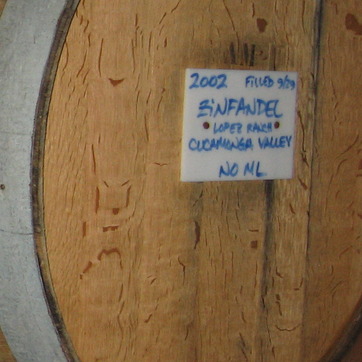 2002 FILLED 9/29
ZINFANDEL
LOPEZ RANCH
CUCAMONGA VALLEY
NO ML